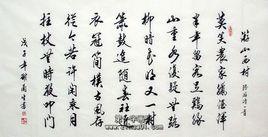 游山西村
莫笑農家臘酒渾
豐年留客足鷄豚
山重水複疑無路
柳暗花明又一村
簫鼓追隨春社近
衣冠簡樸古風存
從今若許閑乘月
拄杖無時夜叩門
戊子年